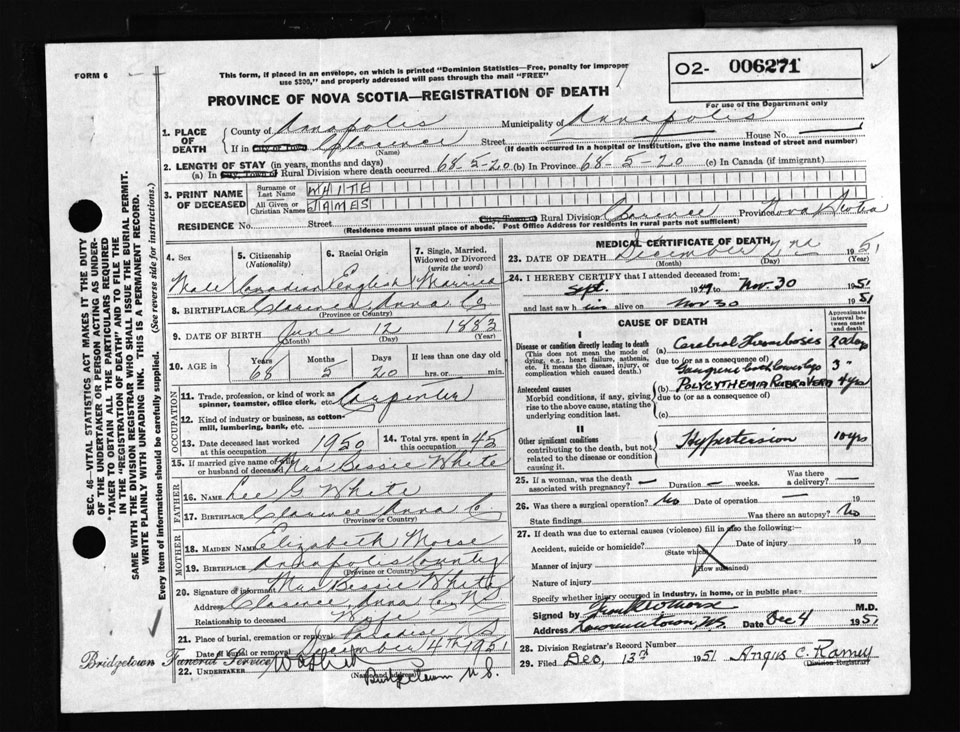 FORM 6
This form, if placed in an envelope, on which is printed "Dominion Statistics—Free, penalty for improper
use $300," and properly addressed will pass through the mail "FREE"
02- 006271
For use of the Department only
PROVINCE OF NOVA SCOTIA—REGISTRATION OF DEATH
1. PLACE OF DEATH
County of Annapolis Municipality of Annapolis
If in City or Town Clarence (Name) Street House No.
(If death occurred in a hospital or institution, give the name instead of street and number)
2. LENGTH OF STAY (in years, months and days)
(a) In City, Town or Rural Division where death occurred 68-5-20 (b) In Province 68-5-20 (c) In Canada (if immigrant)
3. PRINT NAME OF DECEASED
Surname or Last Name WHITE
All Given or Christian Names JAMES
RESIDENCE No. Street City, Town or Rural Division Clarence Province Nova Scotia
(Residence means usual place of abode. Post Office Address for residents in rural parts not sufficient)
SEC. 46—VITAL STATISTICS ACT MAKES IT THE DUTY
OF THE UNDERTAKER OR PERSON ACTING AS UNDER-
TAKER TO OBTAIN ALL THE PARTICULARS REQUIRED
IN THE "REGISTRATION OF DEATH" AND TO FILE THE
SAME WITH THE DIVISION REGISTRAR WHO SHALL ISSUE THE BURIAL PERMIT.
WRITE PLAINLY WITH UNFADING INK. THIS IS A PERMANENT RECORD.
Every item of information should be carefully supplied. (See reverse side for instructions.)
4. Sex
Male
5. Citizenship (Nationality)
Canadian
6. Racial Origin
English
7. Single, Married, Widowed or Divorced (write the word)
Married
8. BIRTHPLACE Clarence Anna Co
(Province or Country)
9. DATE OF BIRTH June 12 1883
(Month) (Day) (Year)
10. AGE in Years 68 Months 5 Days 20 If less than one day old hrs. or min.
OCCUPATION
11. Trade, profession, or kind of work as spinner, teamster, office clerk, etc. Carpenter
12. Kind of industry or business, as cotton-mill, lumbering, bank, etc.
13. Date deceased last worked at this occupation 1950
14. Total yrs. spent in this occupation 45
15. If married give name of wife or husband of deceased Mrs Bessie White
FATHER
16. NAME Lee G White
17. BIRTHPLACE Clarence Anna C.
(Province or Country)
MOTHER
18. MAIDEN NAME Elizabeth Morse
19. BIRTHPLACE Annapolis County
(Province or Country)
20. Signature of informant Mrs Bessie White
Address Clarence Anna Co NS
Relationship to deceased
21. Place of burial, cremation or removal Paradise N S
Date of burial or removal December 4th 1951
Bridgetown Funeral Service
22. UNDERTAKER
(Name and address)
Bridgetown N.S.
MEDICAL CERTIFICATE OF DEATH
23. DATE OF DEATH December 2nd 1951
(Month) (Day) (Year)
24. I HEREBY CERTIFY that I attended deceased from
Sept. 1949 to Nov. 30 1951
and last saw him alive on Nov 30 1951
CAUSE OF DEATH
Approximate interval between onset and death
I
Disease or condition directly leading to death
(This does not mean the mode of dying, e.g., heart failure, asthenia, etc. It means the disease, injury, or complication which caused death.)
(a) Cerebral Thrombosis 2 days
due to (or as a consequence of)
Gangrene both lower legs 3"
Antecedent causes
Morbid conditions, if any, giving rise to the above cause, stating the underlying condition last.
(b) POLYCYTHEMIA RUBRA VERA 4 yrs
due to (or as a consequence of)
(c)
II
Other significant conditions
contributing to the death, but not related to the disease or condition causing it.
Hypertension 10 yrs
25. If a woman, was the death associated with pregnancy? — Duration — weeks. Was there a delivery? —
26. Was there a surgical operation? No Date of operation — 19
State findings Was there an autopsy? No
27. If death was due to external causes (violence) fill in also the following:—
Accident, suicide or homicide? (State which) Date of injury 19
Manner of injury (How sustained)
Nature of injury
Specify whether injury occurred in industry, in home, or in public place
Signed by Frank W Morse M.D.
Address Lawrencetown N.S. Date Dec 4 1951
28. Division Registrar's Record Number
29. Filed Dec, 13th 1951 Angus C. Ramey
(Division Registrar)